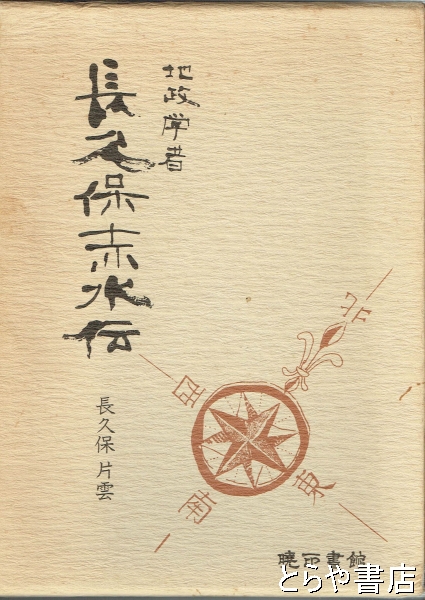 地政学者
長久保赤水伝
長久保片雲
北
西
東
南
暁印書館
とらや書店